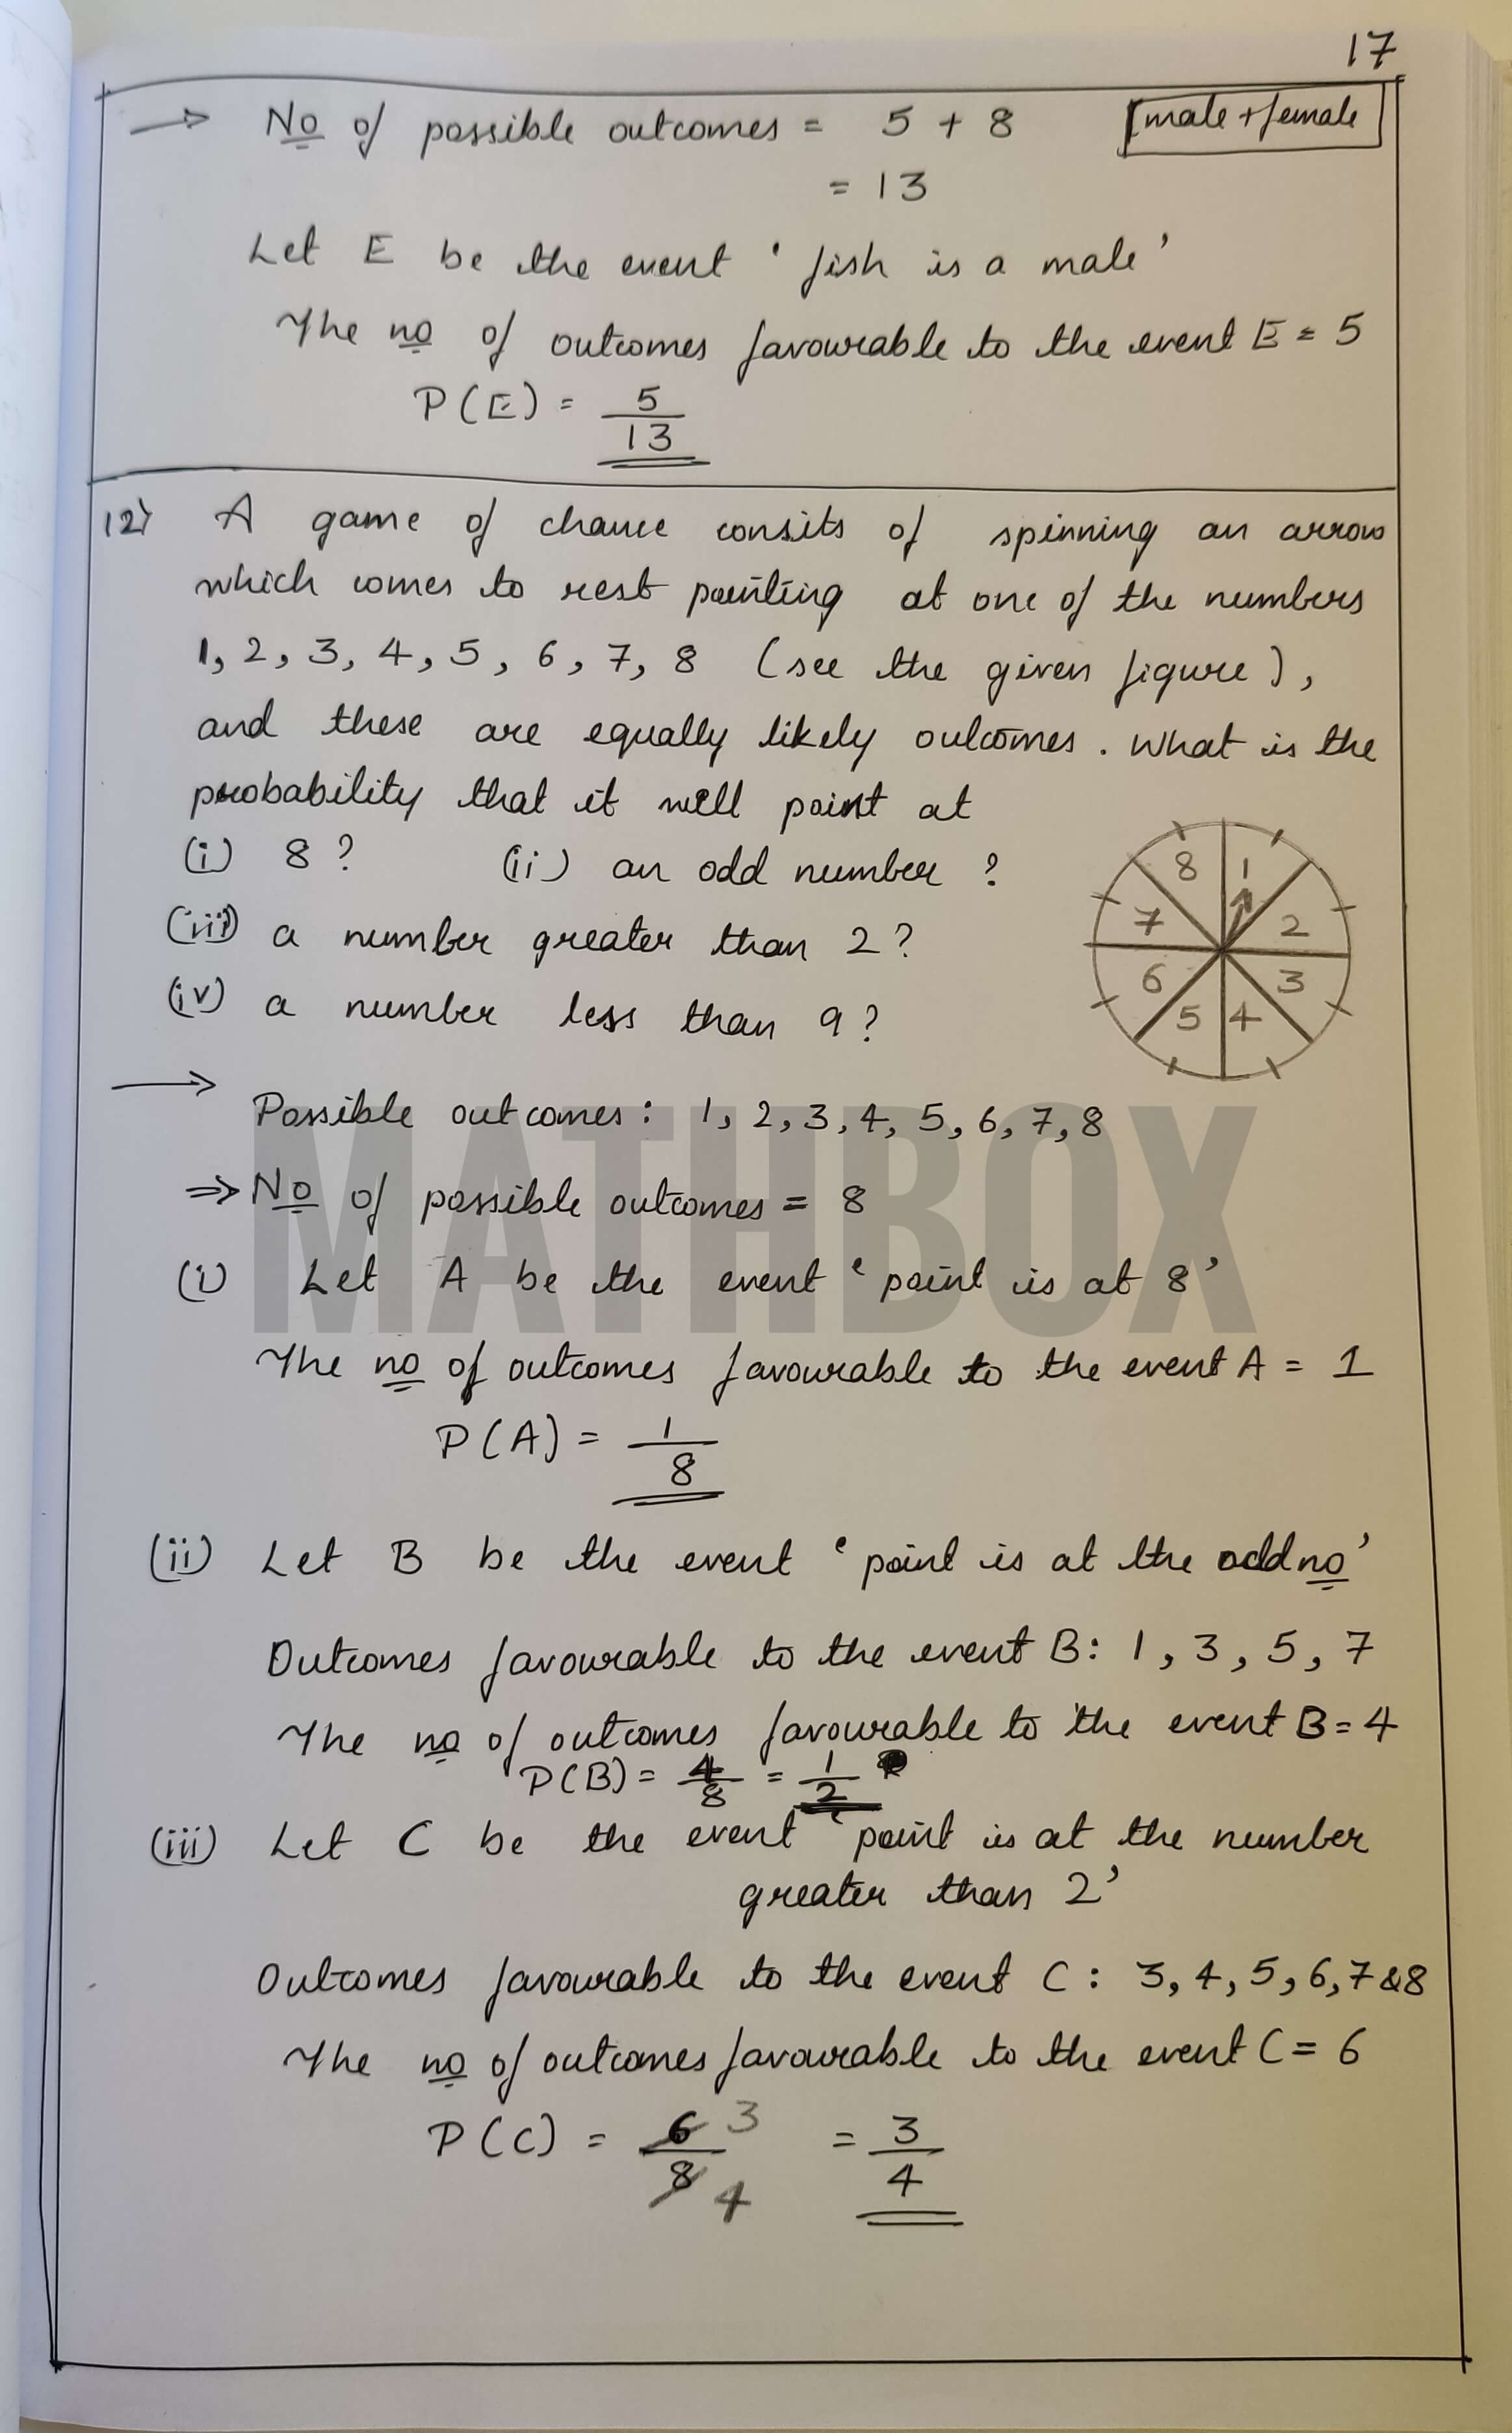 17
→ No of possible outcomes = 5 + 8 [male + female
= 13
Let E be the event ' fish is a male '
The no of outcomes favourable to the event E = 5
P(E) = 5/13
12) A game of chance consits of spinning an arrow
which comes to rest pointing at one of the numbers
1, 2, 3, 4, 5, 6, 7, 8 (see the given figure),
and these are equally likely outcomes. What is the
probability that it will point at
(i) 8 ? (ii) an odd number ?
(iii) a number greater than 2 ?
(iv) a number less than 9 ?
8 1
7 2
6 3
5 4
→
Possible outcomes : 1, 2, 3, 4, 5, 6, 7, 8
⇒ No of possible outcomes = 8
MATHBOX
(i) Let A be the event ' point is at 8 '
The no of outcomes favourable to the event A = 1
P(A) = 1/8
(ii) Let B be the event ' point is at the odd no '
Outcomes favourable to the event B : 1, 3, 5, 7
The no of outcomes favourable to the event B = 4
P(B) = 4/8 = 1/2
(iii) Let C be the event ' point is at the number
greater than 2 '
Outcomes favourable to the event C : 3, 4, 5, 6, 7 & 8
The no of outcomes favourable to the event C = 6
P(C) = 6/8 3 4 = 3/4